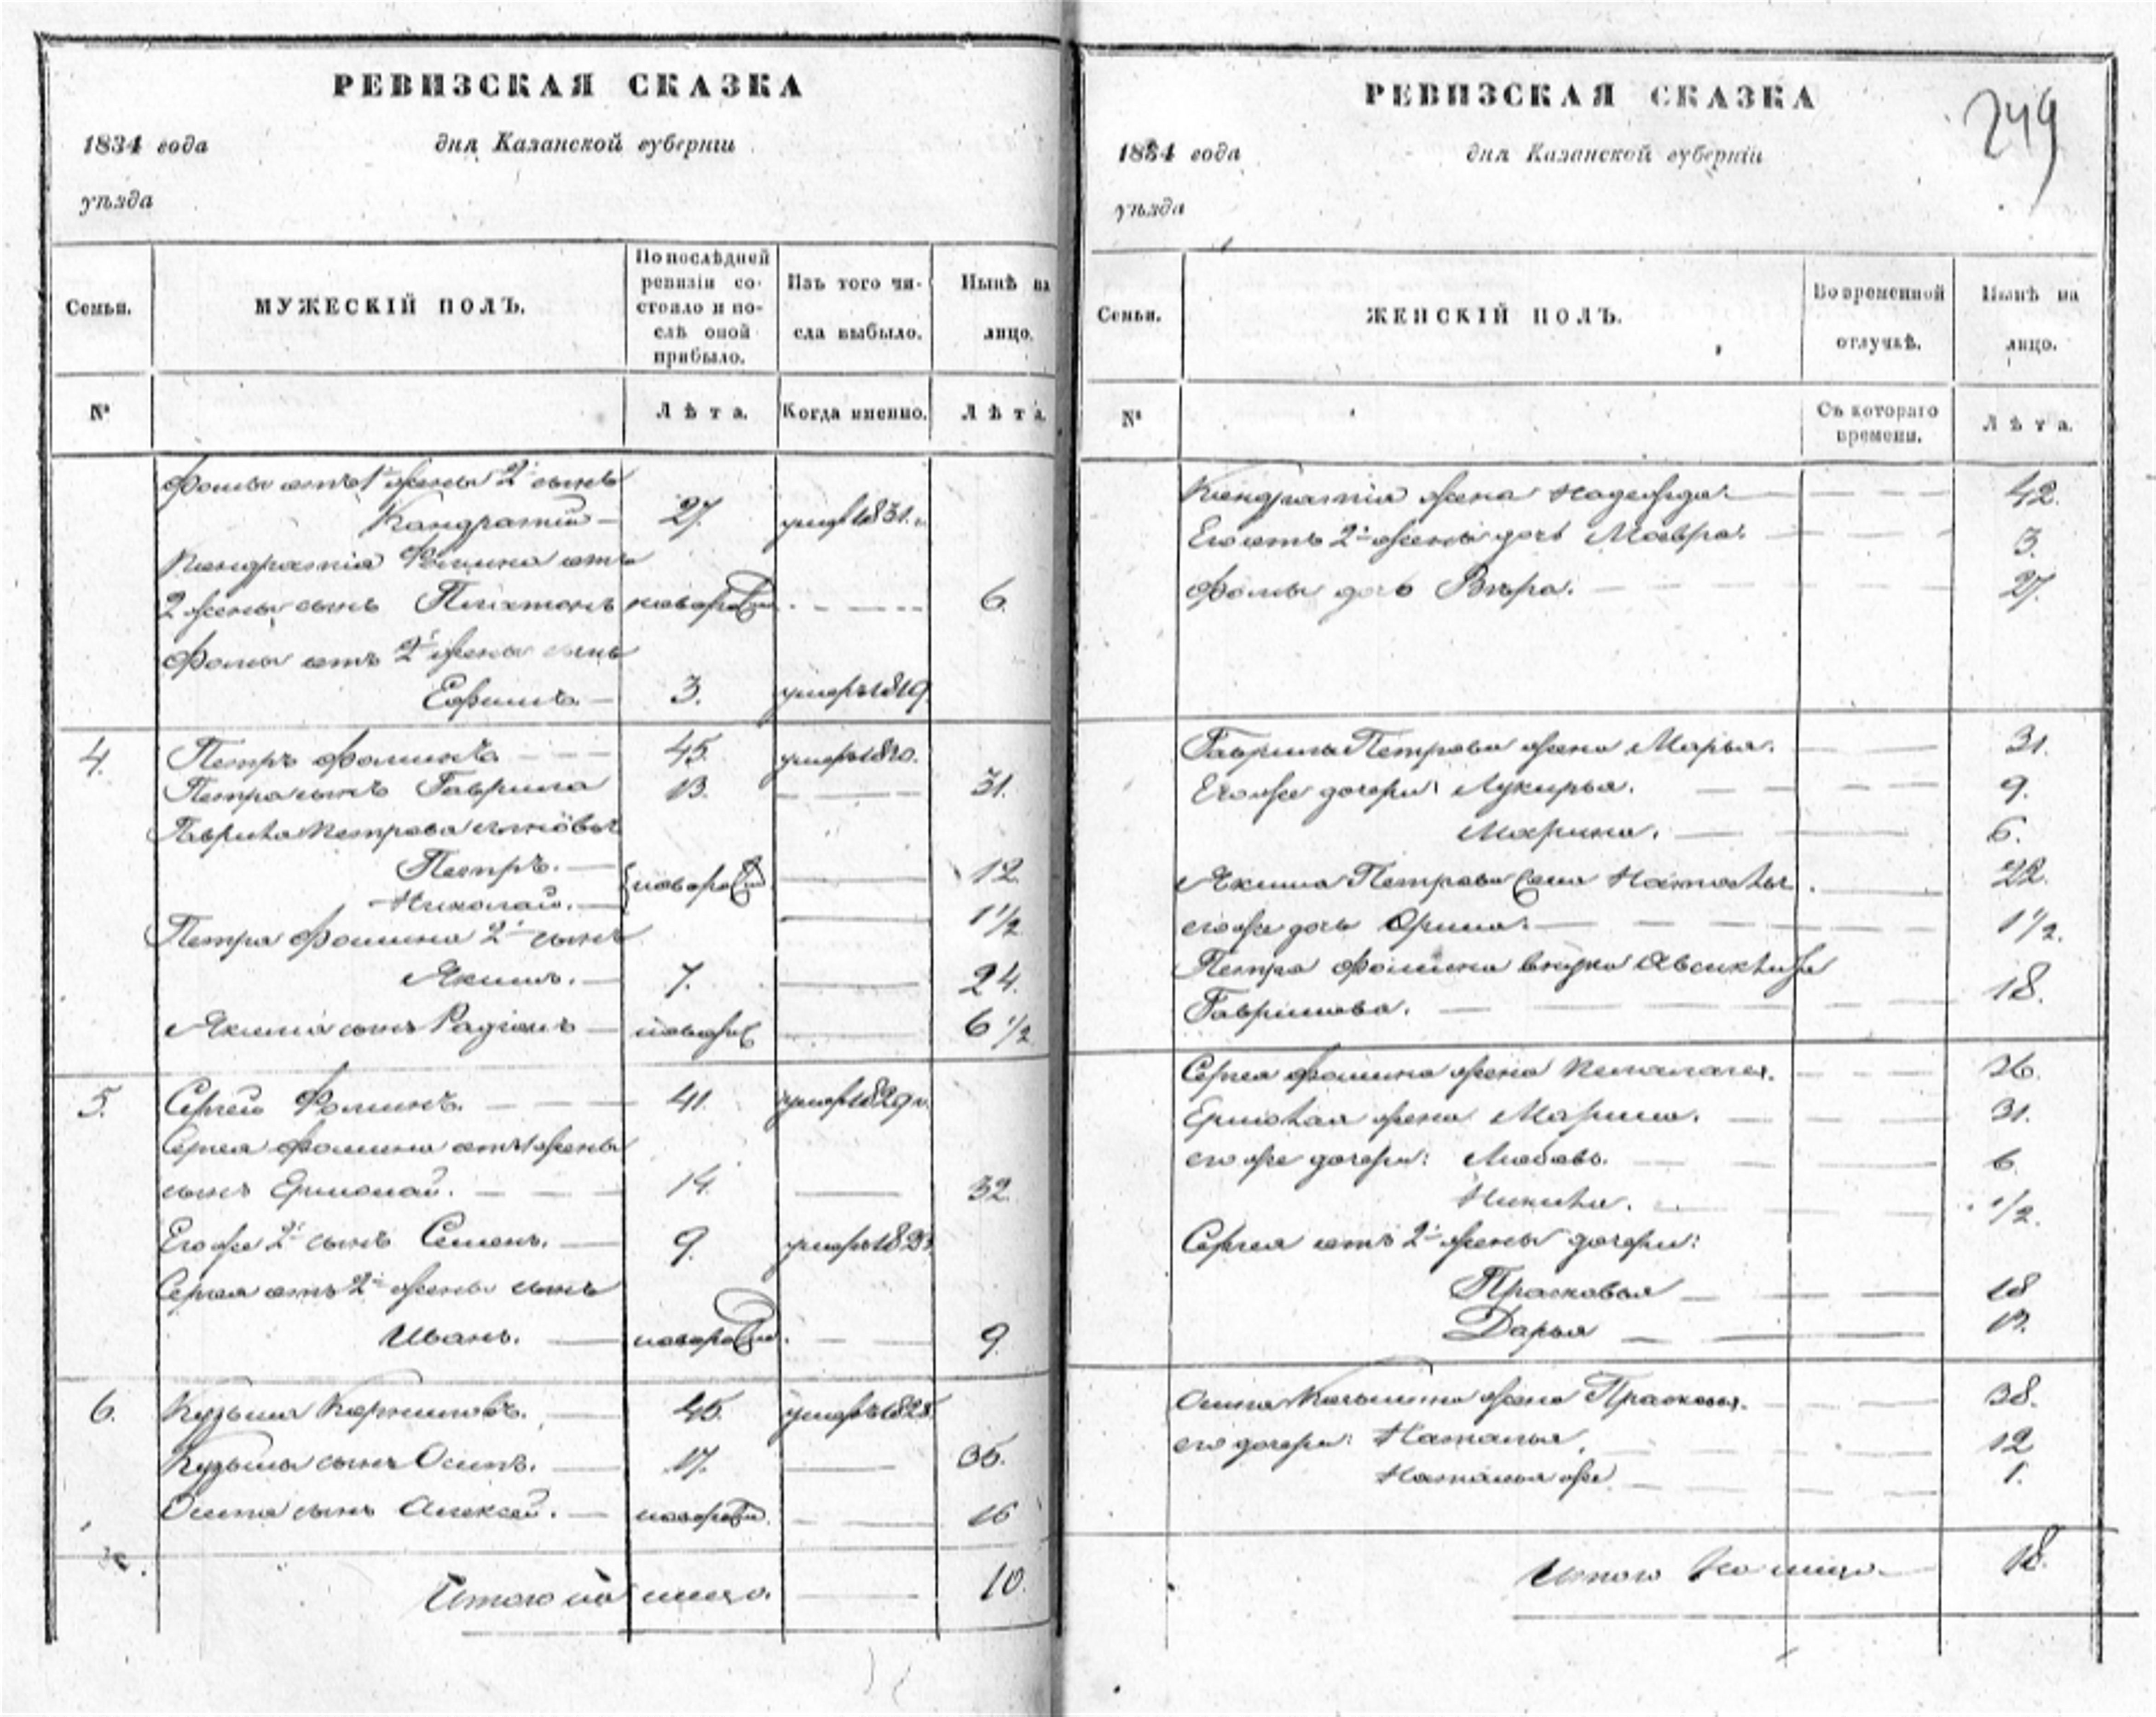 РЕВИЗСКАЯ СКАЗКА
1834 года дня Казанской губернiи
уѣзда
Семьи. МУЖЕСКIЙ ПОЛЪ. По послѣдней ревизiи состояло и послѣ оной прибыло. Изъ того числа выбыло. Нынѣ на лицо.
№ Лѣта. Когда именно. Лѣта.
Фомы отъ 1 жены 2й сынъ
Кандратiй 27. умеръ 1831.
Кандратiя Фомина отъ
2 жены сынъ Платонъ новорож 6.
Фомы отъ 2й жены сынъ
Ефимъ 3. умеръ 1819.
4. Петръ Фоминъ 45. умеръ 1820.
Петра сынъ Гаврила 13. 31.
Гаврила Петрова сыновья
Петръ. новорож 12
Николай. 1 1/2
Петра Фомина 2й сынъ
Якимъ. 7. 24.
Якима сынъ Радiонъ новорж 6 1/2
5. Сергей Фоминъ. 41. умеръ 1829.
Сергея Фомина отъ 1 жены
сынъ Ермолай. 14. 32.
Его же 2й сынъ Семенъ. 9. умеръ
Сергея отъ 2й жены сынъ
Иванъ. новорож 9.
6. Кузьма 45. умеръ 1828.
Кузьмы сынъ Осипъ. 17. 35.
Осипа сынъ Алексей. новорож 16
Итого на лицо. 10.
РЕВИЗСКАЯ СКАЗКА
249
1834 года дня Казанской губернiи
уѣзда
Семьи. ЖЕНСКIЙ ПОЛЪ. Во временной отлучкѣ. Нынѣ на лицо.
№ Съ котораго времени. Лѣта.
Кандратiя жена Надежда. 42.
Его отъ 2й жены дочь Мавра. 3.
Фомы дочь Вѣра. 27.
Гаврила Петрова жена Марья. 31.
Его же дочери: Лукирья. 9.
Марина. 6.
Якима Петрова жена Наталья. 22.
его же дочь Орина. 1 1/2.
Петра Фомина внучка
Гаврилова. 18.
Сергея Фомина жена Пелагея. 36.
Ермолая жена Марина. 31.
его же дочери: Любовь. 6.
1/2.
Сергея отъ 2й жены дочери:
Прасковья 18
Дарья 13.
Осипа Кузьмина жена Прасковья. 38.
его дочери: Наталья. 12
Наталья же 1.
Итого на лицо. 18.